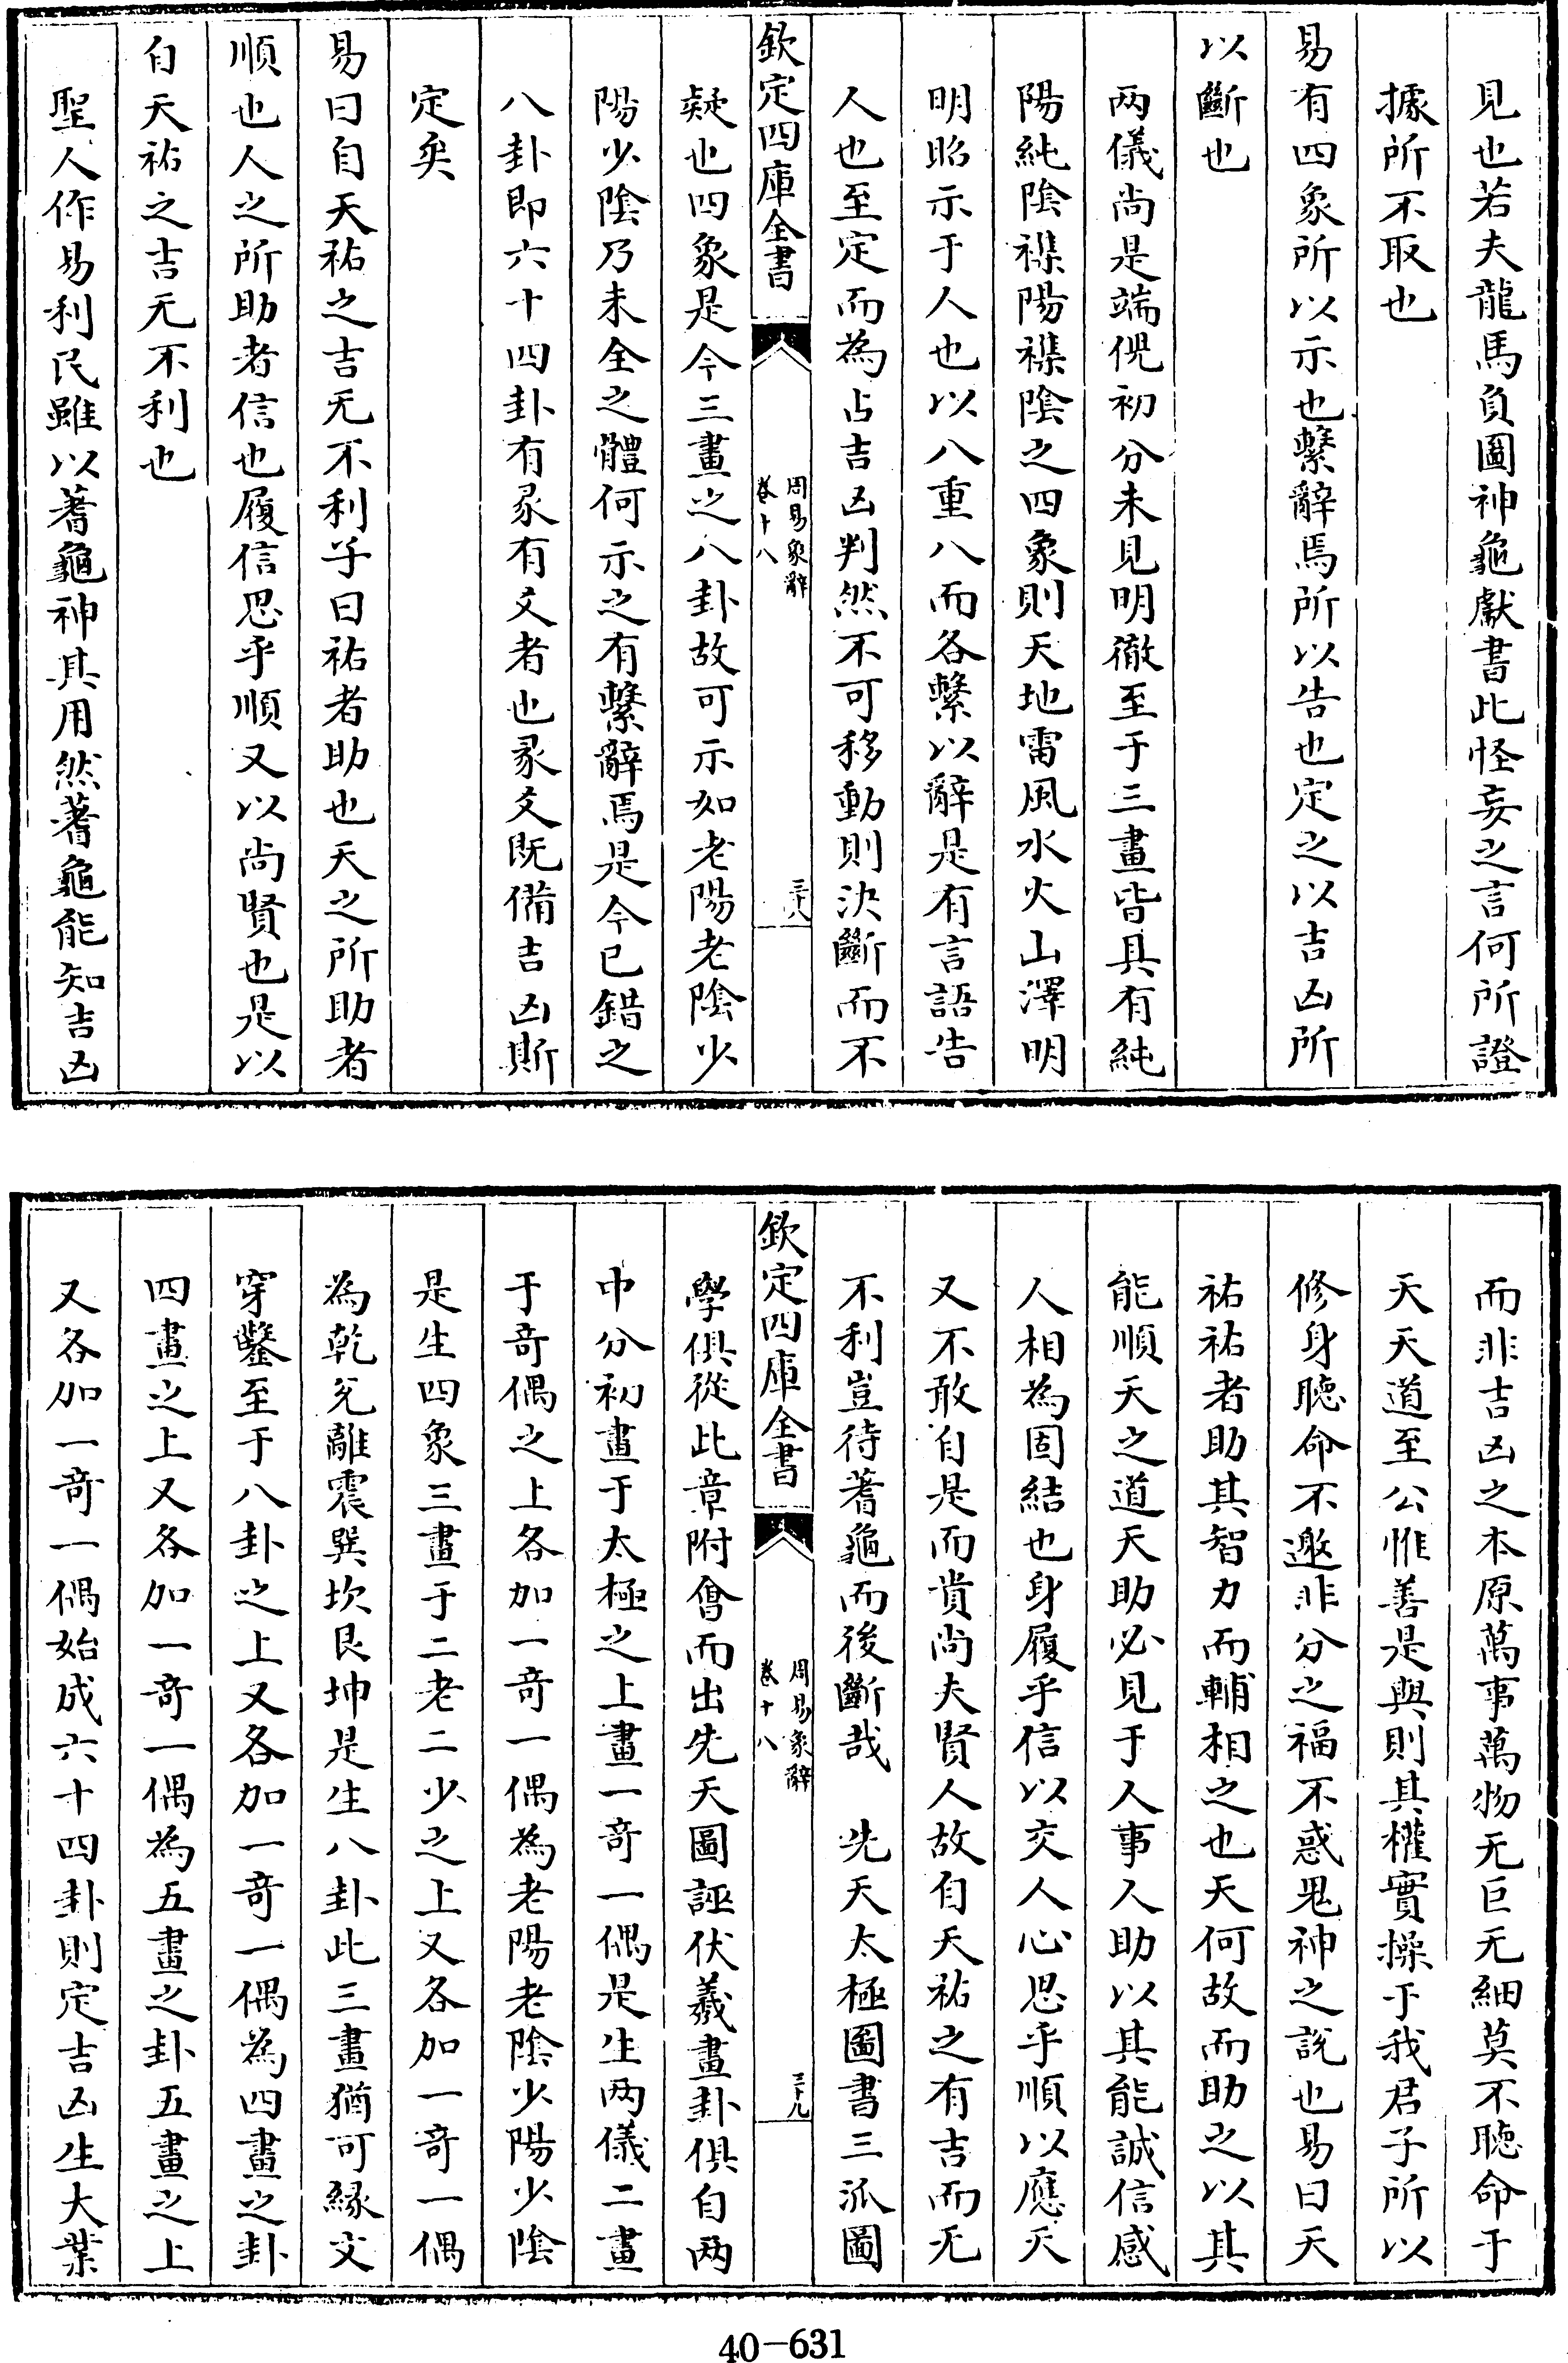 見也若夫龍馬負圖神龜獻書此怪妄之言何所證
據所不取也
易有四象所以示也繫辭焉所以告也定之以吉凶所
以斷也
两儀尚是端倪初分未見明徹至于三畫皆具有純
陽純陰襍陽襍陰之四象則天地雷風水火山澤明
明昭示于人也以八重八而各繫以辭是有言語告
人也至定而為占吉凶判然不可移動則決斷而不
欽定四庫全書
周易象辭
卷十八
三十八
疑也四象是今三畫之八卦故可示如老陽老陰少
陽少陰乃未全之體何示之有繫辭焉是今已錯之
八卦即六十四卦有彖有爻者也彖爻既備吉凶斯
定矣
易曰自天祐之吉无不利子曰祐者助也天之所助者
順也人之所助者信也履信思乎順又以尚賢也是以
自天祐之吉无不利也
聖人作易利民雖以蓍龜神其用然蓍龜能知吉凶
而非吉凶之本原萬事萬物无巨无細莫不聽命于
天天道至公惟善是與則其權實操于我君子所以
修身聽命不邀非分之福不惑鬼神之說也易曰天
祐祐者助其智力而輔相之也天何故而助之以其
能順天之道天助必見于人事人助以其能誠信感
人相為固結也身履乎信以交人心思乎順以應天
又不敢自是而貴尚夫賢人故自天祐之有吉而无
不利豈待蓍龜而後斷哉　先天太極圖書三派圖
欽定四庫全書
周易象辭
卷十八
三十九
學俱從此章附會而出先天圖誣伏羲畫卦俱自两
中分初畫于太極之上畫一奇一偶是生两儀二畫
于奇偶之上各加一奇一偶為老陽老陰少陽少陰
是生四象三畫于二老二少之上又各加一奇一偶
為乾兌離震巽坎艮坤是生八卦此三畫猶可緣文
穿鑿至于八卦之上又各加一奇一偶為四畫之卦
四畫之上又各加一奇一偶為五畫之卦五畫之上
又各加一奇一偶始成六十四卦則定吉凶生大業
40-631